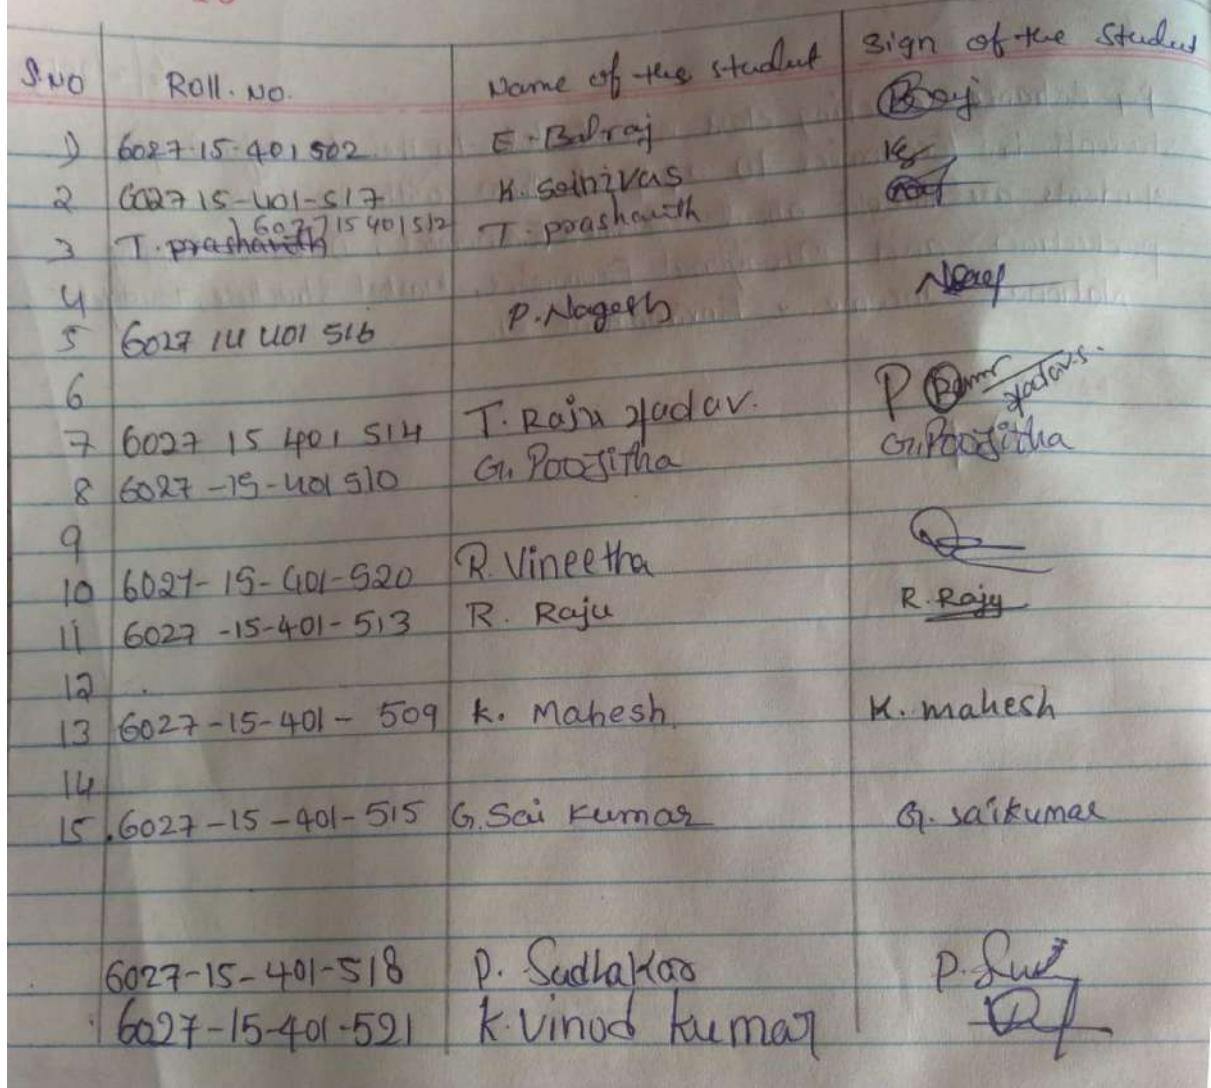 S.NO Roll. NO. Name of the student Sign of the Student
1) 6027-15-401502 E. Balraj
2 6027 15-401-517 K. Srinivas
3 T. prashanth 6027 15 401512 T. prashanth
4
5 6027 14 401 516 P. Nagesh
6
7 6027 15 401 514 T. Raju Yadav. P Yadav.s.
8 6027-15-401 510 G. Poojitha G. Poojitha
9
10 6027-15-401-520 R. Vineetha
11 6027-15-401-513 R. Raju R. Raju
12
13 6027-15-401-509 K. Mahesh K. mahesh
14
15 6027-15-401-515 G. Sai Kumar G. saikumar
6027-15-401-518 P. Sudhakar
6027-15-401-521 K. Vinod Kumar